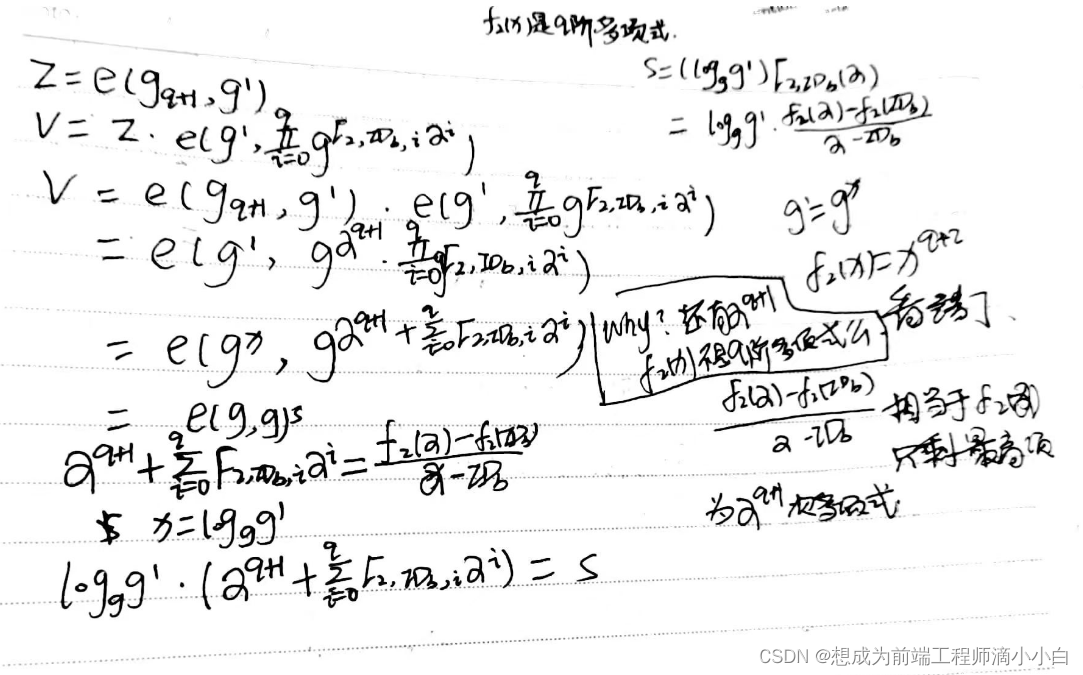 f₂(x)是q阶多项式.
Z = e(g_{q+1}, g')
V = Z · e(g', ∏_{i=0}^{q} g^{F_{2,ID_b,i} α^i})
V = e(g_{q+1}, g') · e(g', ∏_{i=0}^{q} g^{F_{2,ID_b,i} α^i})
= e(g', g^{α^{q+1}} · ∏_{i=0}^{q} g^{F_{2,ID_b,i} α^i})
= e(g^x, g^{α^{q+1} + ∑_{i=0}^{q} F_{2,ID_b,i} α^i})
= e(g,g)^s
α^{q+1} + ∑_{i=0}^{q} F_{2,ID_b,i} α^i = \frac{f₂(α) - f₂(ID_b)}{α - ID_b}
x = log_g g'
log_g g' · (α^{q+1} + ∑_{i=0}^{q} F_{2,ID_b,i} α^i) = s
s = (log_g g') F_{2,ID_b}(α)
= log_g g' · \frac{f₂(α) - f₂(ID_b)}{α - ID_b}
g' = g^x
f₂(x) = x^{q+2}
Why? 还有α^{q+1}
f₂(x)不是q阶多项式么
看错了、
\frac{f₂(α) - f₂(ID_b)}{α - ID_b} 相当于f₂
只剩最高项
为α^{q+1}次多项式.
CSDN @想成为前端工程师滴小小白